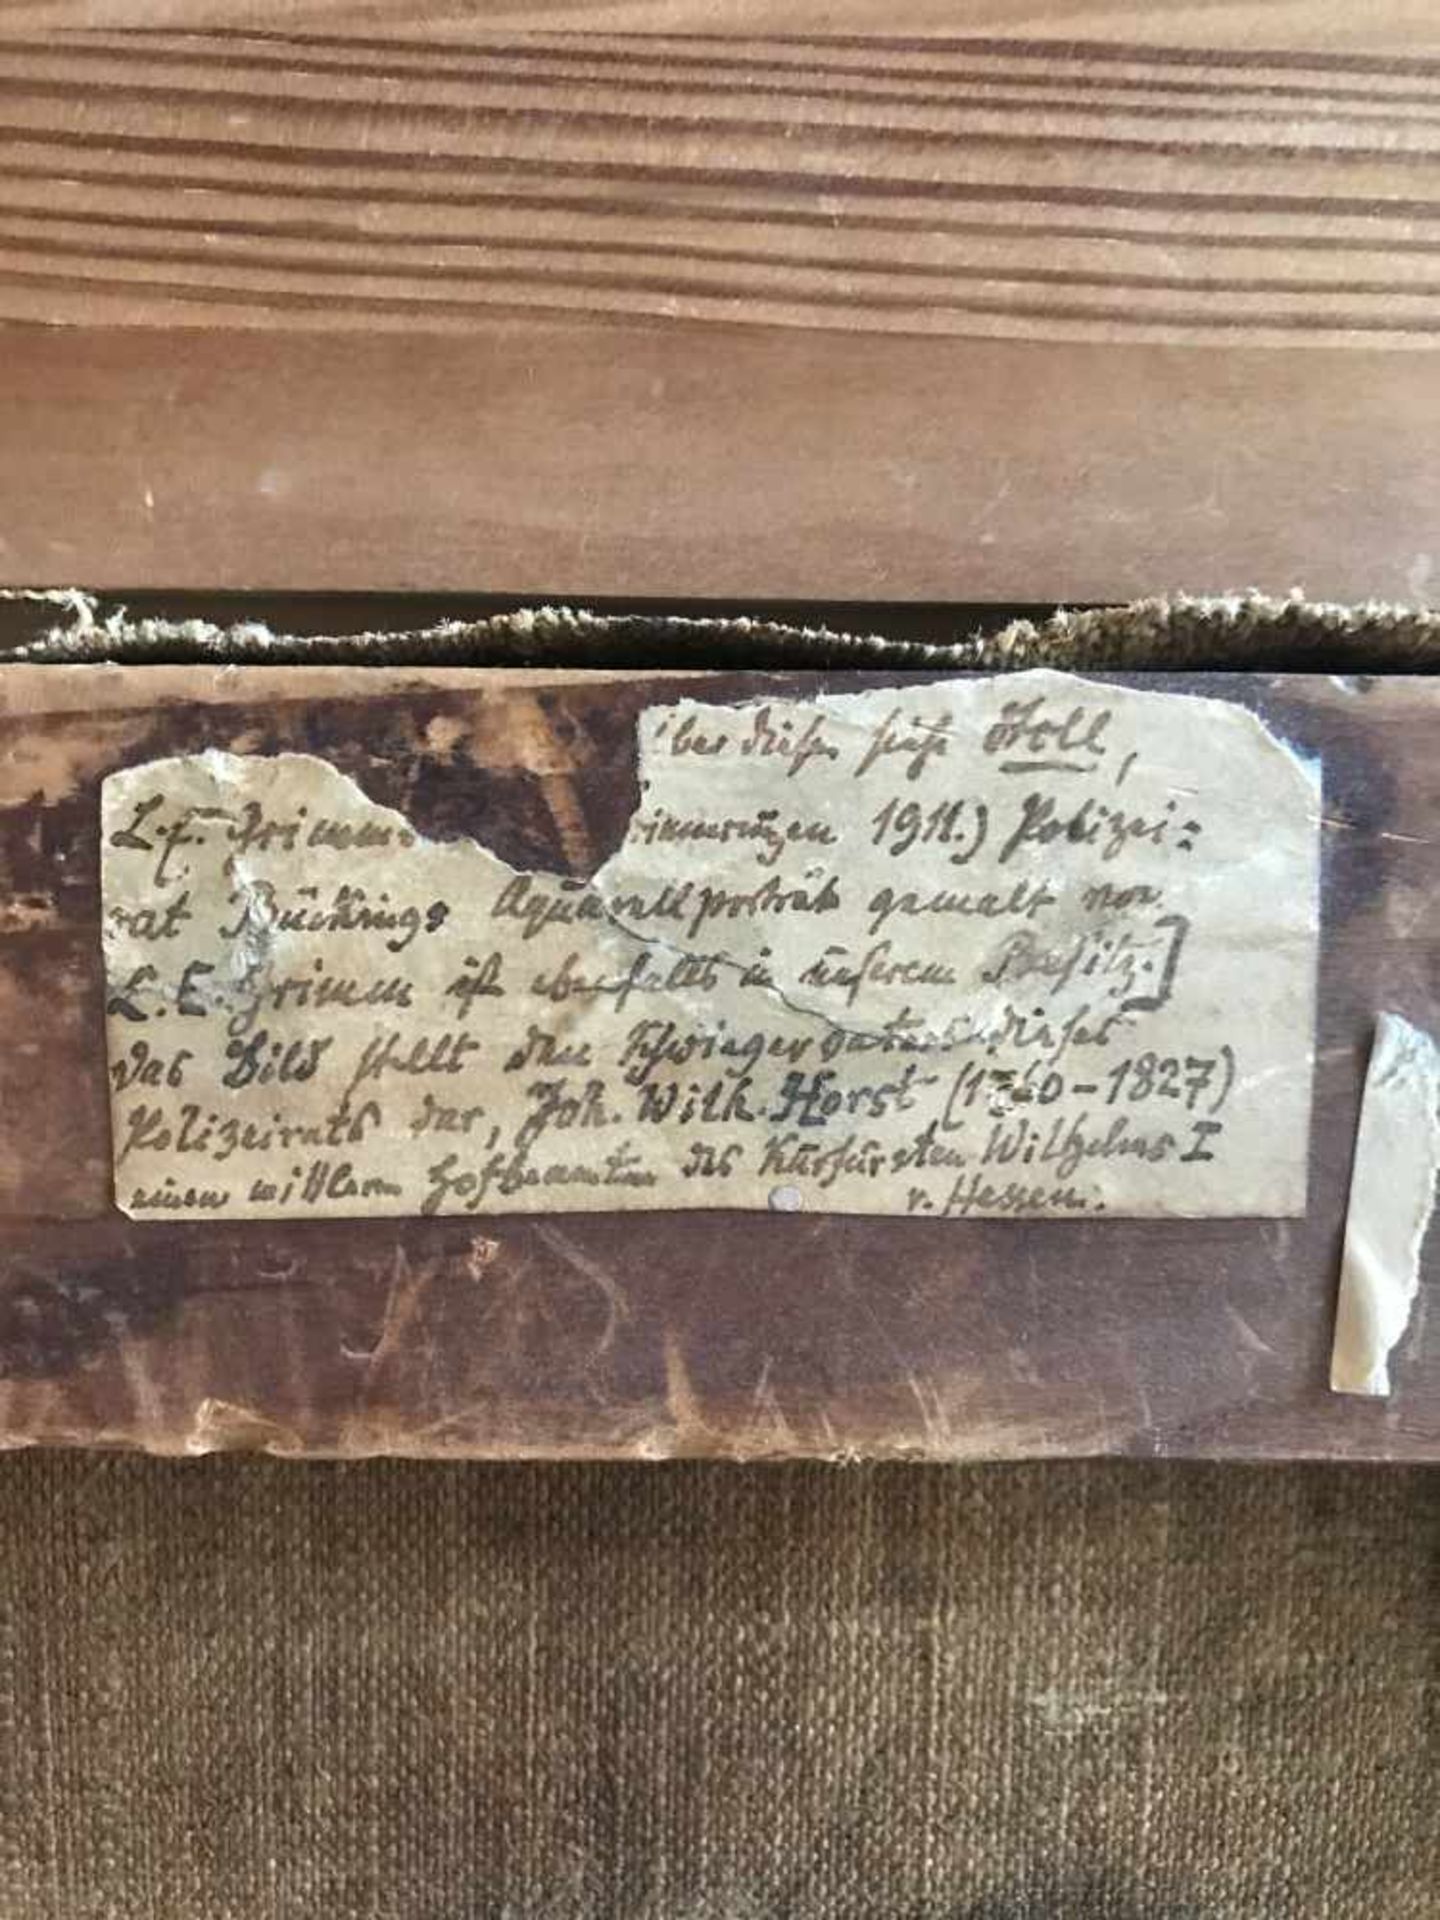 über diesen siehe Stoll,
L. E. Grimm innerungen 1911.) Polizei=
rat Bückings Aquarellporträt gemalt von
L. E. Grimm ist ebenfalls in unserem Besitz.]
Das Bild stellt den Schwiegervater dieses
Polizeirats dar, Joh. Wilh. Horst (1760-1827)
einen mittleren Hofbeamten des Kurfürsten Wilhelms I
v. Hessen.